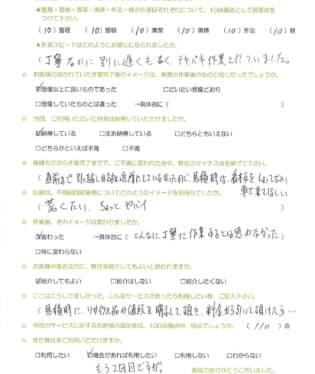 ★整理・整頓・清掃・清潔・作法・躾の6項目それぞれについて、10点満点として評価点を
つけて下さい。
(10)整理 (10)整頓 (10)清掃 (10)清潔 (10)作法 (10)躾
★作業スピードはどのようにお感じになられましたか。
(丁寧なのに 別に遅くもなく テキパキ作業されていました。
お客様の描かれていた作業完了後のイメージは、実際の作業後のものと同じだったでしょうか。
☑想像以上に良いものであった □だいたい想像どおり
□想像していたものとは違った →具体的に(
今回、ご利用いただいた料金は納得していただけましたか。
☑納得している □まあ納得している □どちらともいえない
□どちらかといえば不満 □不満
見積もりから作業完了までで、ご不満に思われた点や、弊社のマイナス点を挙げて下さい。
車で来てほしい
以前は、不用品回収業者についてどのようなイメージをお持ちでしたか。
(荒くたい、ちょっとヤバイ
作業後、そのイメージは変わりましたか。
☑変わった →具体的に(こんなに丁寧に作業するとは思わなかった)
□特に変わらない
お客様の身近な方に、弊社を紹介してもよいと思われますか。
☑紹介してもよい □紹介はしない □紹介したくない
ここはこうしてほしかった、こんなサービスがあったら利用したい等、ご記入下さい。
今回のサービスに対するお客様の満足度は、100点満点中、何点でしょうか。(110)点
また弊社をご利用いただけますか。
□利用したい ☑機会があれば利用したい □利用しない □わからない
もう2回目ですが。
ご協力ありがとうございました。